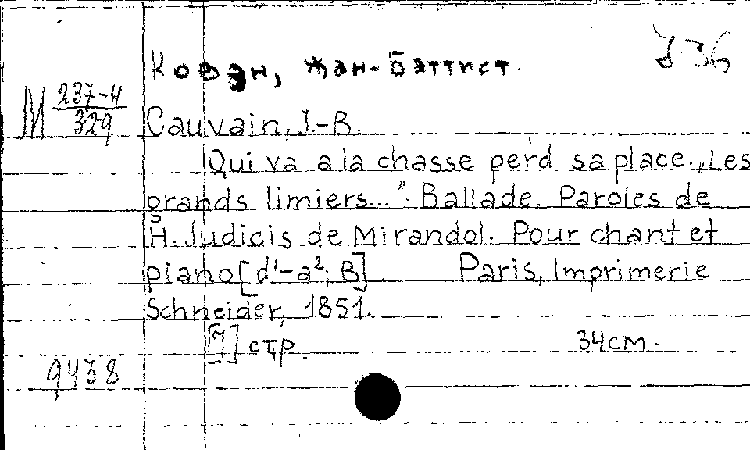 Кован, Жан-Баттист.
М 237-4
329
Cauvain, J.-B.
Qui va a la chasse perd sa place. „Les
grands limiers...". Ballade. Paroles de
H. Judicis de Mirandol. Pour chant et
piano [d¹-a²; B] Paris, Imprimerie
Schneider, 1851.
стр. 34см.
9438